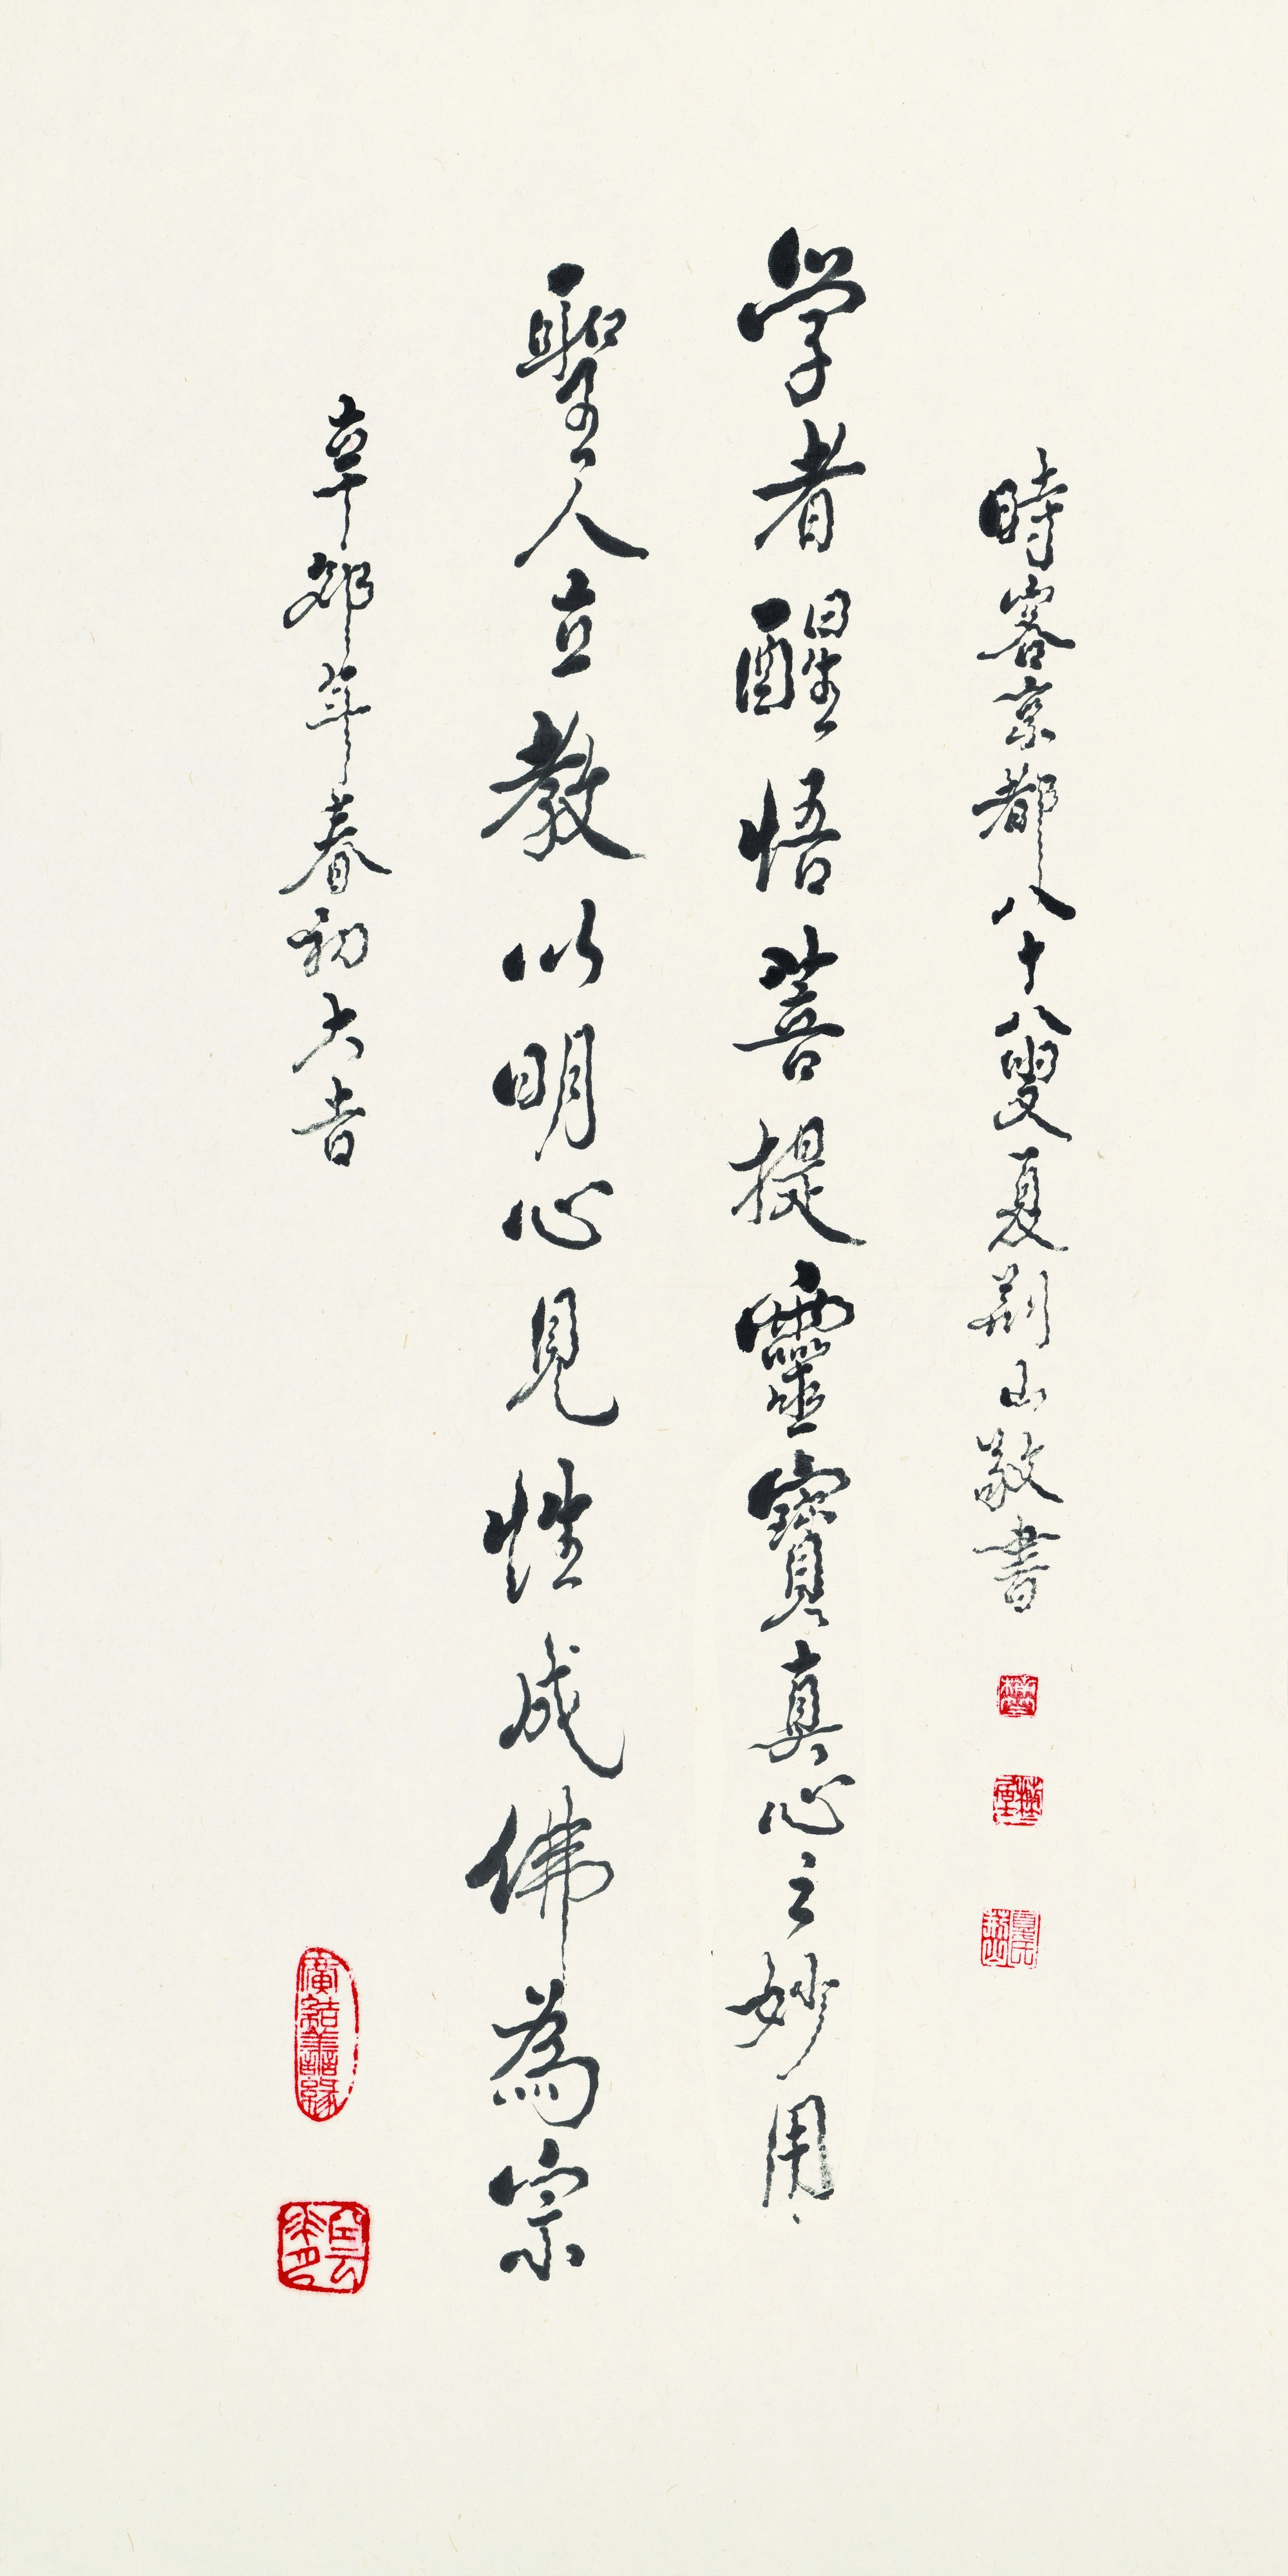 時客京都八十八叟夏荊山敬書
学者醒悟菩提靈寶真心之妙用
聖人立教以明心見性成佛為宗
辛卯年春初大吉
廣結善緣